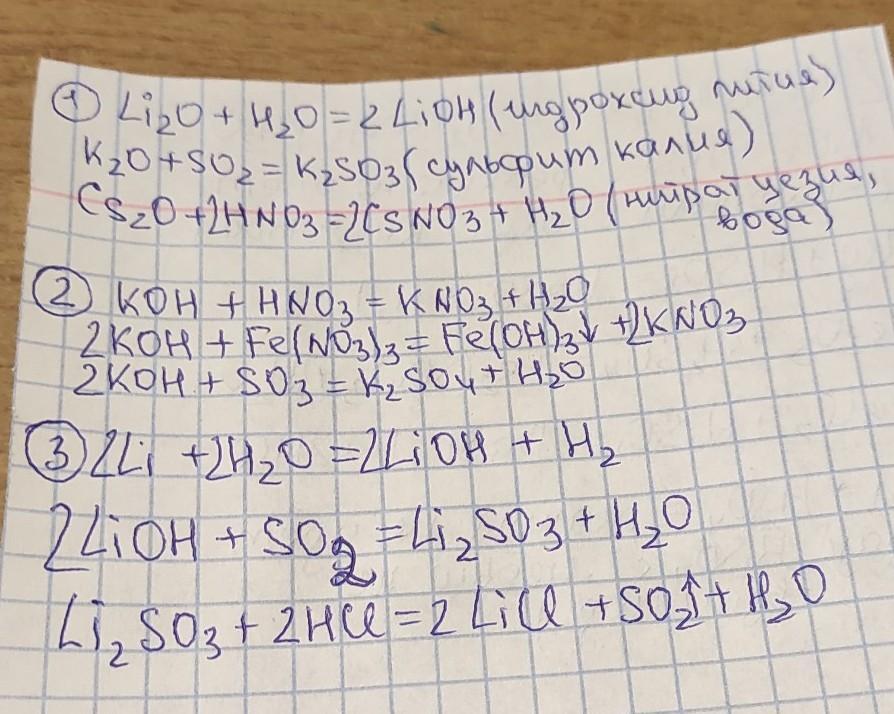 ① Li₂O + H₂O = 2LiOH (гидроксид лития)
K₂O + SO₂ = K₂SO₃ (сульфит калия)
Cs₂O + 2HNO₃ = 2CsNO₃ + H₂O (нитрат цезия,
вода)
② KOH + HNO₃ = KNO₃ + H₂O
2KOH + Fe(NO₃)₃ = Fe(OH)₃↓ + 2KNO₃
2KOH + SO₃ = K₂SO₄ + H₂O
③ 2Li + 2H₂O = 2LiOH + H₂
2LiOH + SO₂ = Li₂SO₃ + H₂O
Li₂SO₃ + 2HCl = 2LiCl + SO₂↑ + H₂O